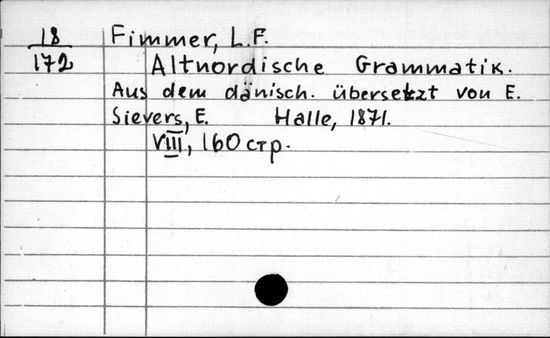 18
172
Fimmer, L.F.
Altnordische Grammatik.
Aus dem dänisch. übersetzt von E.
Sievers, E. Halle, 1871.
VIII, 160 стр.